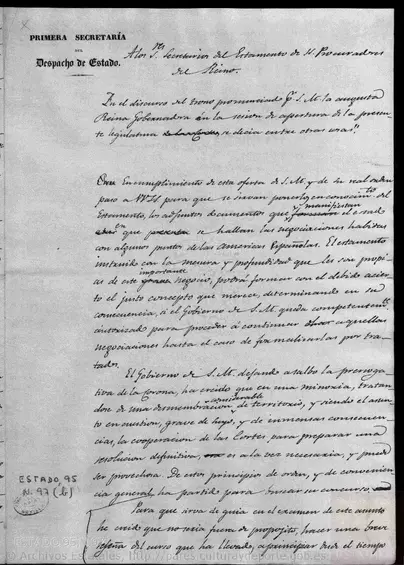 PRIMERA SECRETARÍA
DEL
Despacho de Estado.
A los S.res Secretarios del Estamento de H. Procuradores
del Reino.
En el discurso del trono pronunciado p.r S. M. la augusta
Reina Gobernadora en la sesion de apertura de la presen-
te legislatura se decia entre otras cosas"
En cumplimiento de esta oferta de S. M. y de su real orden
paso a VSS para que se sirvan ponerlos en conocim.to
del Estamento, los adjuntos documentos que manifiestan el estado
en que se hallan las negociaciones habidas
con algunos puntos de las Americas Españolas. El estamento
instruido con la mesura y profundidad que les son propias
de este importante negocio, podrá formar con el debido acier-
to el justo concepto que merece, determinando en su
consecuencia, si el Gobierno de S. M. queda competentem.te
autorizado para proceder á continuar aquellas
negociaciones hasta el caso de formalizarlas por tra-
tados.
El Gobierno de S. M. dejando á salvo la preroga-
tiva de la corona, ha creido que en una minoria, tratan-
dose de una desmembracion considerable de territorio, y siendo el asun-
to en cuestion, grave de suyo, y de inmensas consecuen-
cias, la cooperacion de las Cortes para preparar una
resolucion definitiva, es á la vez necesaria, y puede
ser provechosa. De estos principios de orden, y de convenien-
cia general ha partido para buscar su concurso.
ESTADO, 95
N. 97 (b)
Para que sirva de guia en el examen de este asunto
he creido que no seria fuera de proposito, hacer una breve
reseña del curso que ha llevado, a principiar desde el tiempo
© Archivos Estatales, http://pares.culturaydeporte.gob.es